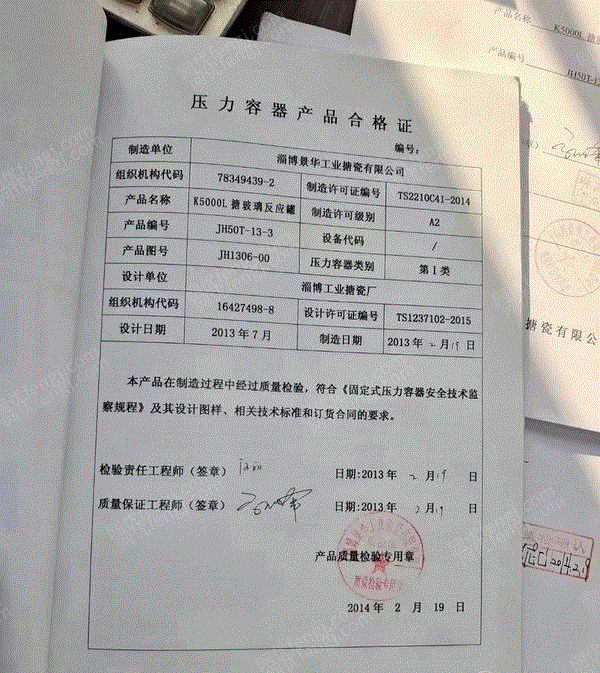 压力容器产品合格证
编号:
制造单位 淄博景华工业搪瓷有限公司
组织机构代码 78349439-2 制造许可证编号 TS2210C41-2014
产品名称 K5000L 搪玻璃反应罐 制造许可级别 A2
产品编号 JH50T-13-3 设备代码 /
产品图号 JH1306-00 压力容器类别 第Ⅰ类
设计单位 淄博工业搪瓷厂
组织机构代码 16427498-8 设计许可证编号 TS1237102-2015
设计日期 2013年7月 制造日期 2013年2月19日
本产品在制造过程中经过质量检验,符合《固定式压力容器安全技术监
察规程》及其设计图样、相关技术标准和订货合同的要求。
检验责任工程师(签章) 日期:2013年2月19日
质量保证工程师(签章) 日期:2013年2月19日
产品质量检验专用章
2014年2月19日
产品名称 K5000L 搪
产品编号 JH50T-13
搪瓷有限公